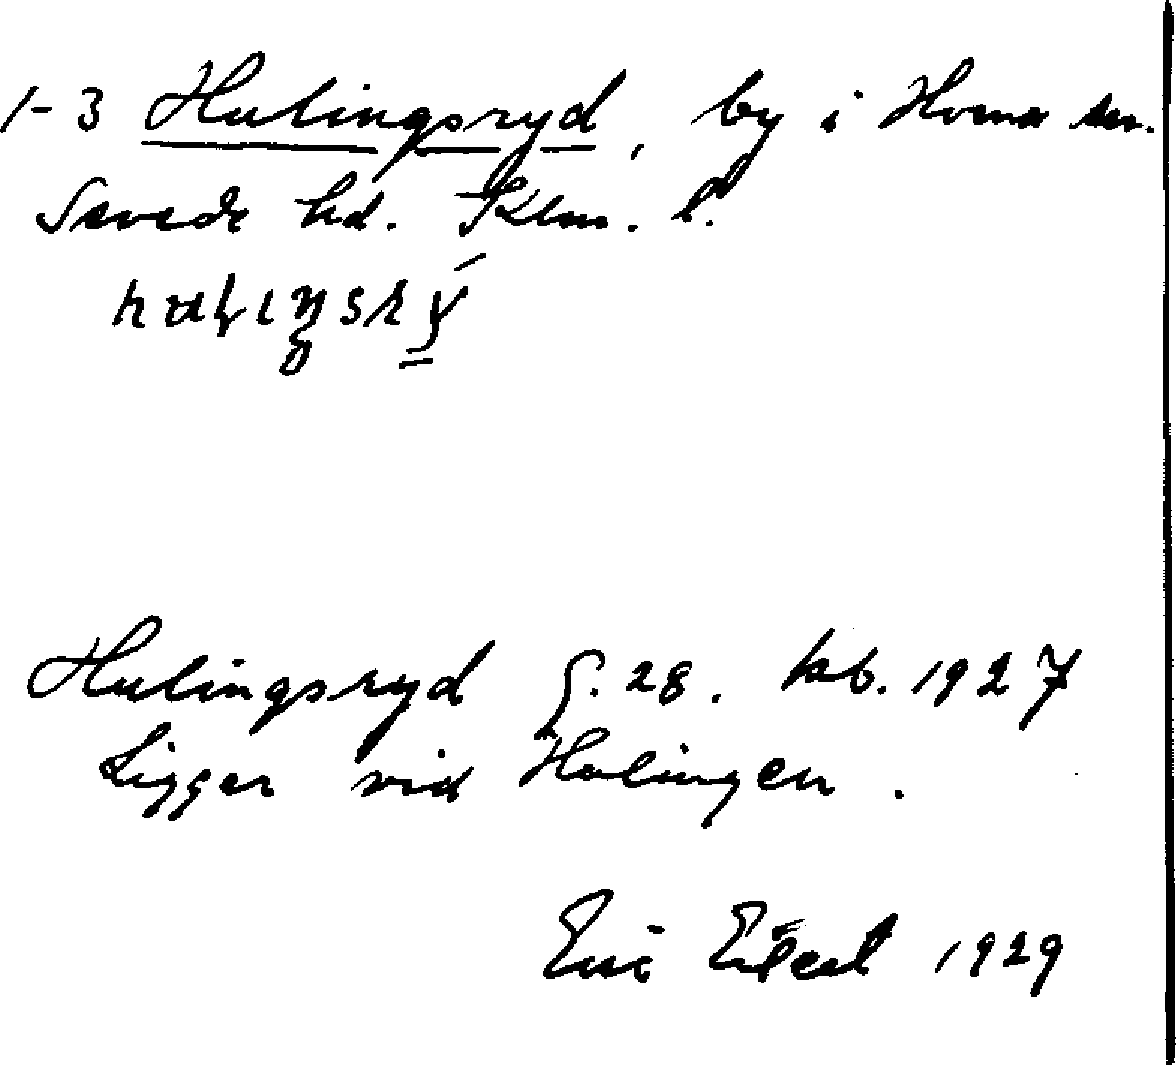 1-3 Hulingsryd, by i Hvena sn.
Sevede hd. Klm. l.
Hulingsryd s. 28. kb. 1927
Ligger vid Hulingen.
Eric Elgert 1929